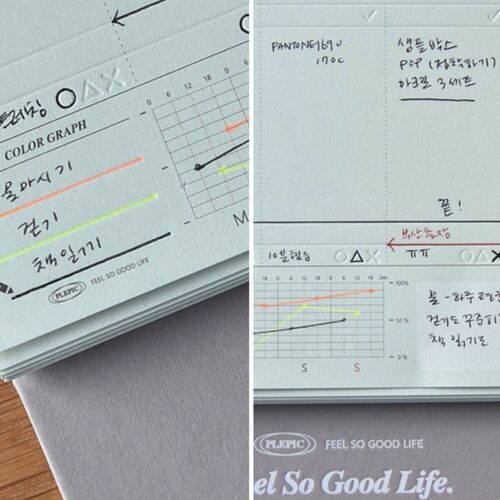 스트레칭 O△X
COLOR GRAPH
물마시기
걷기
책읽기
PLEPIC FEEL SO GOOD LIFE
0 6 12 18 0 6 12 18
M
PANTONE 1690
170C
샘플박스
POP (접착하기)
아크릴 3세트
끝!
부산출장
10분했음 O△X
ㅠㅠ O△X
100%
50%
0%
S S
물 - 하루
걷기도 꾸준히
책 읽기도
PLEPIC FEEL SO GOOD LIFE
el So Good Life.